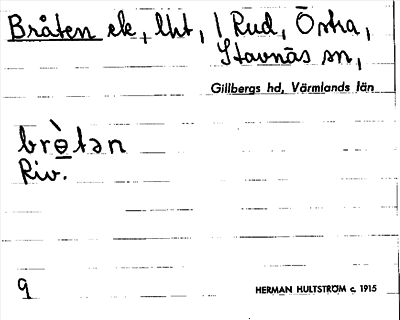 Bråten ek, lht, 1 Rud, Östra,
Stavnäs sn,
Gillbergs hd, Värmlands län
brɵ̀tən
Riv.
9
HERMAN HULTSTRÖM c. 1915